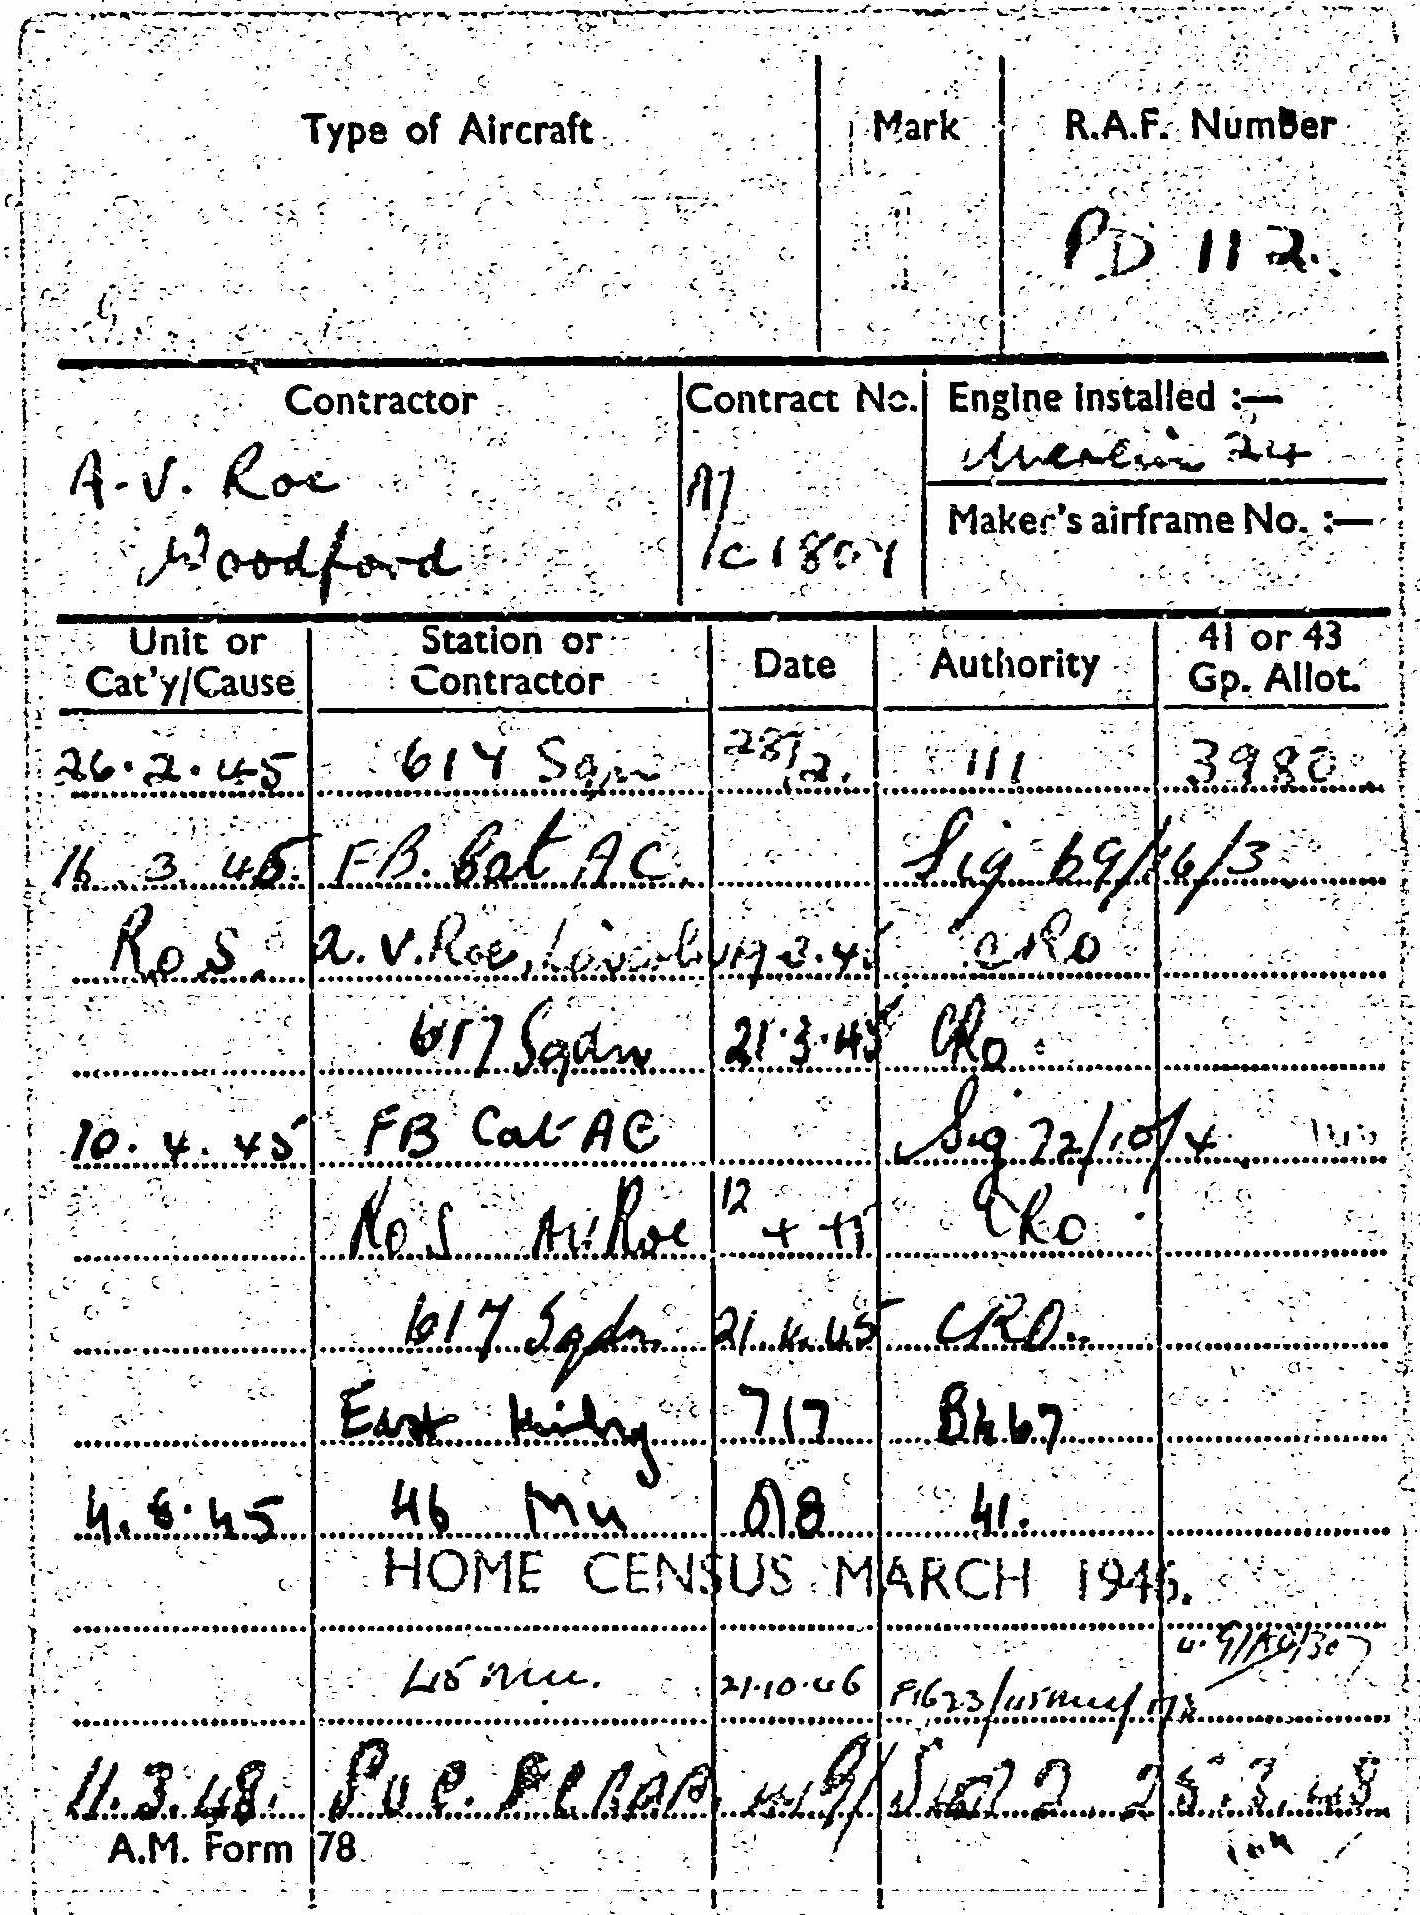 Type of Aircraft Mark R.A.F. Number
PD 112.
Contractor Contract No. Engine installed :—
Merlin 24
A.V. Roe
Maker's airframe No. :—
Woodford /C1807
Unit or Cat'y/Cause Station or Contractor Date Authority 41 or 43 Gp. Allot.
26.2.45 617 Sqn 28/2. 111 3980
16 3 45 FB. Cat AC. Sig 69/16/3
Ros. A.V. Roe, 19.3.45 CRO
617 Sqdn 21.3.45 CRO
10.4.45 FB Cat AC Sig 72/10/4
Ros AV Roe 12 4 45 CRO
617 Sqdn 21.4.45 CRO
East Kirby 7/7 BK67
4.8.45 46 MU 8/8 41.
HOME CENSUS MARCH 1946.
45 MU. 21.10.46
11.3.48. 25.3.48
A.M. Form 78